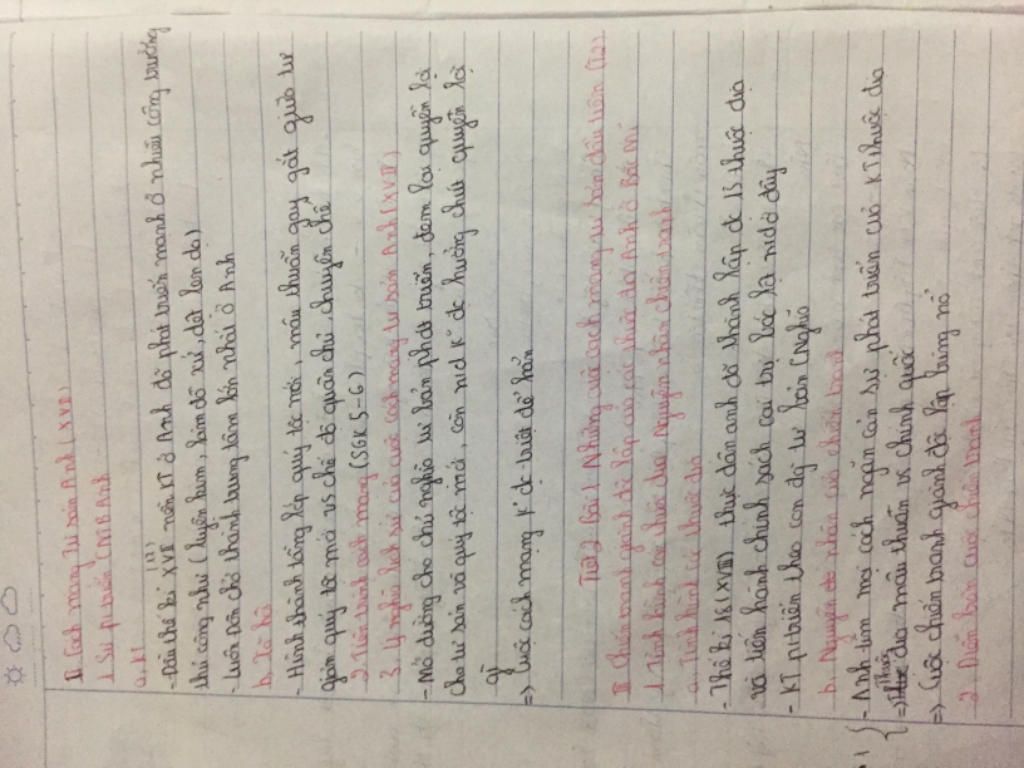 II Cách mạng tư sản Anh (XVII)
1. Sự pt biến CMTS Anh
a. KT
- Đầu thế kỉ XVII nền KT ở Anh đã phát triển mạnh ở nhiều công trường
thủ công như (luyện kim, làm đồ sứ, dệt len dạ)
- Luôn Đôn trở thành trung tâm lớn nhất ở Anh
b. Xã hội
- Hình thành tầng lớp quý tộc mới, mâu thuẫn gay gắt giữa tư
sản quý tộc mới vs chế độ quân chủ chuyên chế
2. Tiến trình cách mạng (SGK 5-6)
3. Ý nghĩa lịch sử của cuộc cách mạng tư sản Anh (XVII)
- Mở đường cho chủ nghĩa tư bản phát triển, đem lại quyền lợi
cho tư sản và quý tộc mới, còn nd K° đc hưởng chút quyền lợi
gì
=> Cuộc cách mạng K° đc triệt để hẳn
Tiết 2 Bài 1 Những cuộc cách mạng tư sản đầu tiên (T2)
III Chiến tranh giành độc lập của các thuộc địa Anh ở Bắc Mĩ
1. Tình hình các thuộc địa. Nguyên nhân chiến tranh
a. Tình hình các thuộc địa
- Thế kỉ 18 (XVIII) thực dân anh đã thành lập đc 13 thuộc địa
và tiến hành chính sách cai trị bóc lột nd ở đây
- KT pt biến theo con đg tư bản CNghĩa
b. Nguyên do nhân của chiến tranh
- Anh tìm mọi cách ngăn cản sự phát triển của KT thuộc địa
=> Thuộc địa mâu thuẫn vs chính quốc
=> Cuộc chiến tranh giành độc lập bùng nổ
2. Diễn biến cuộc chiến tranh